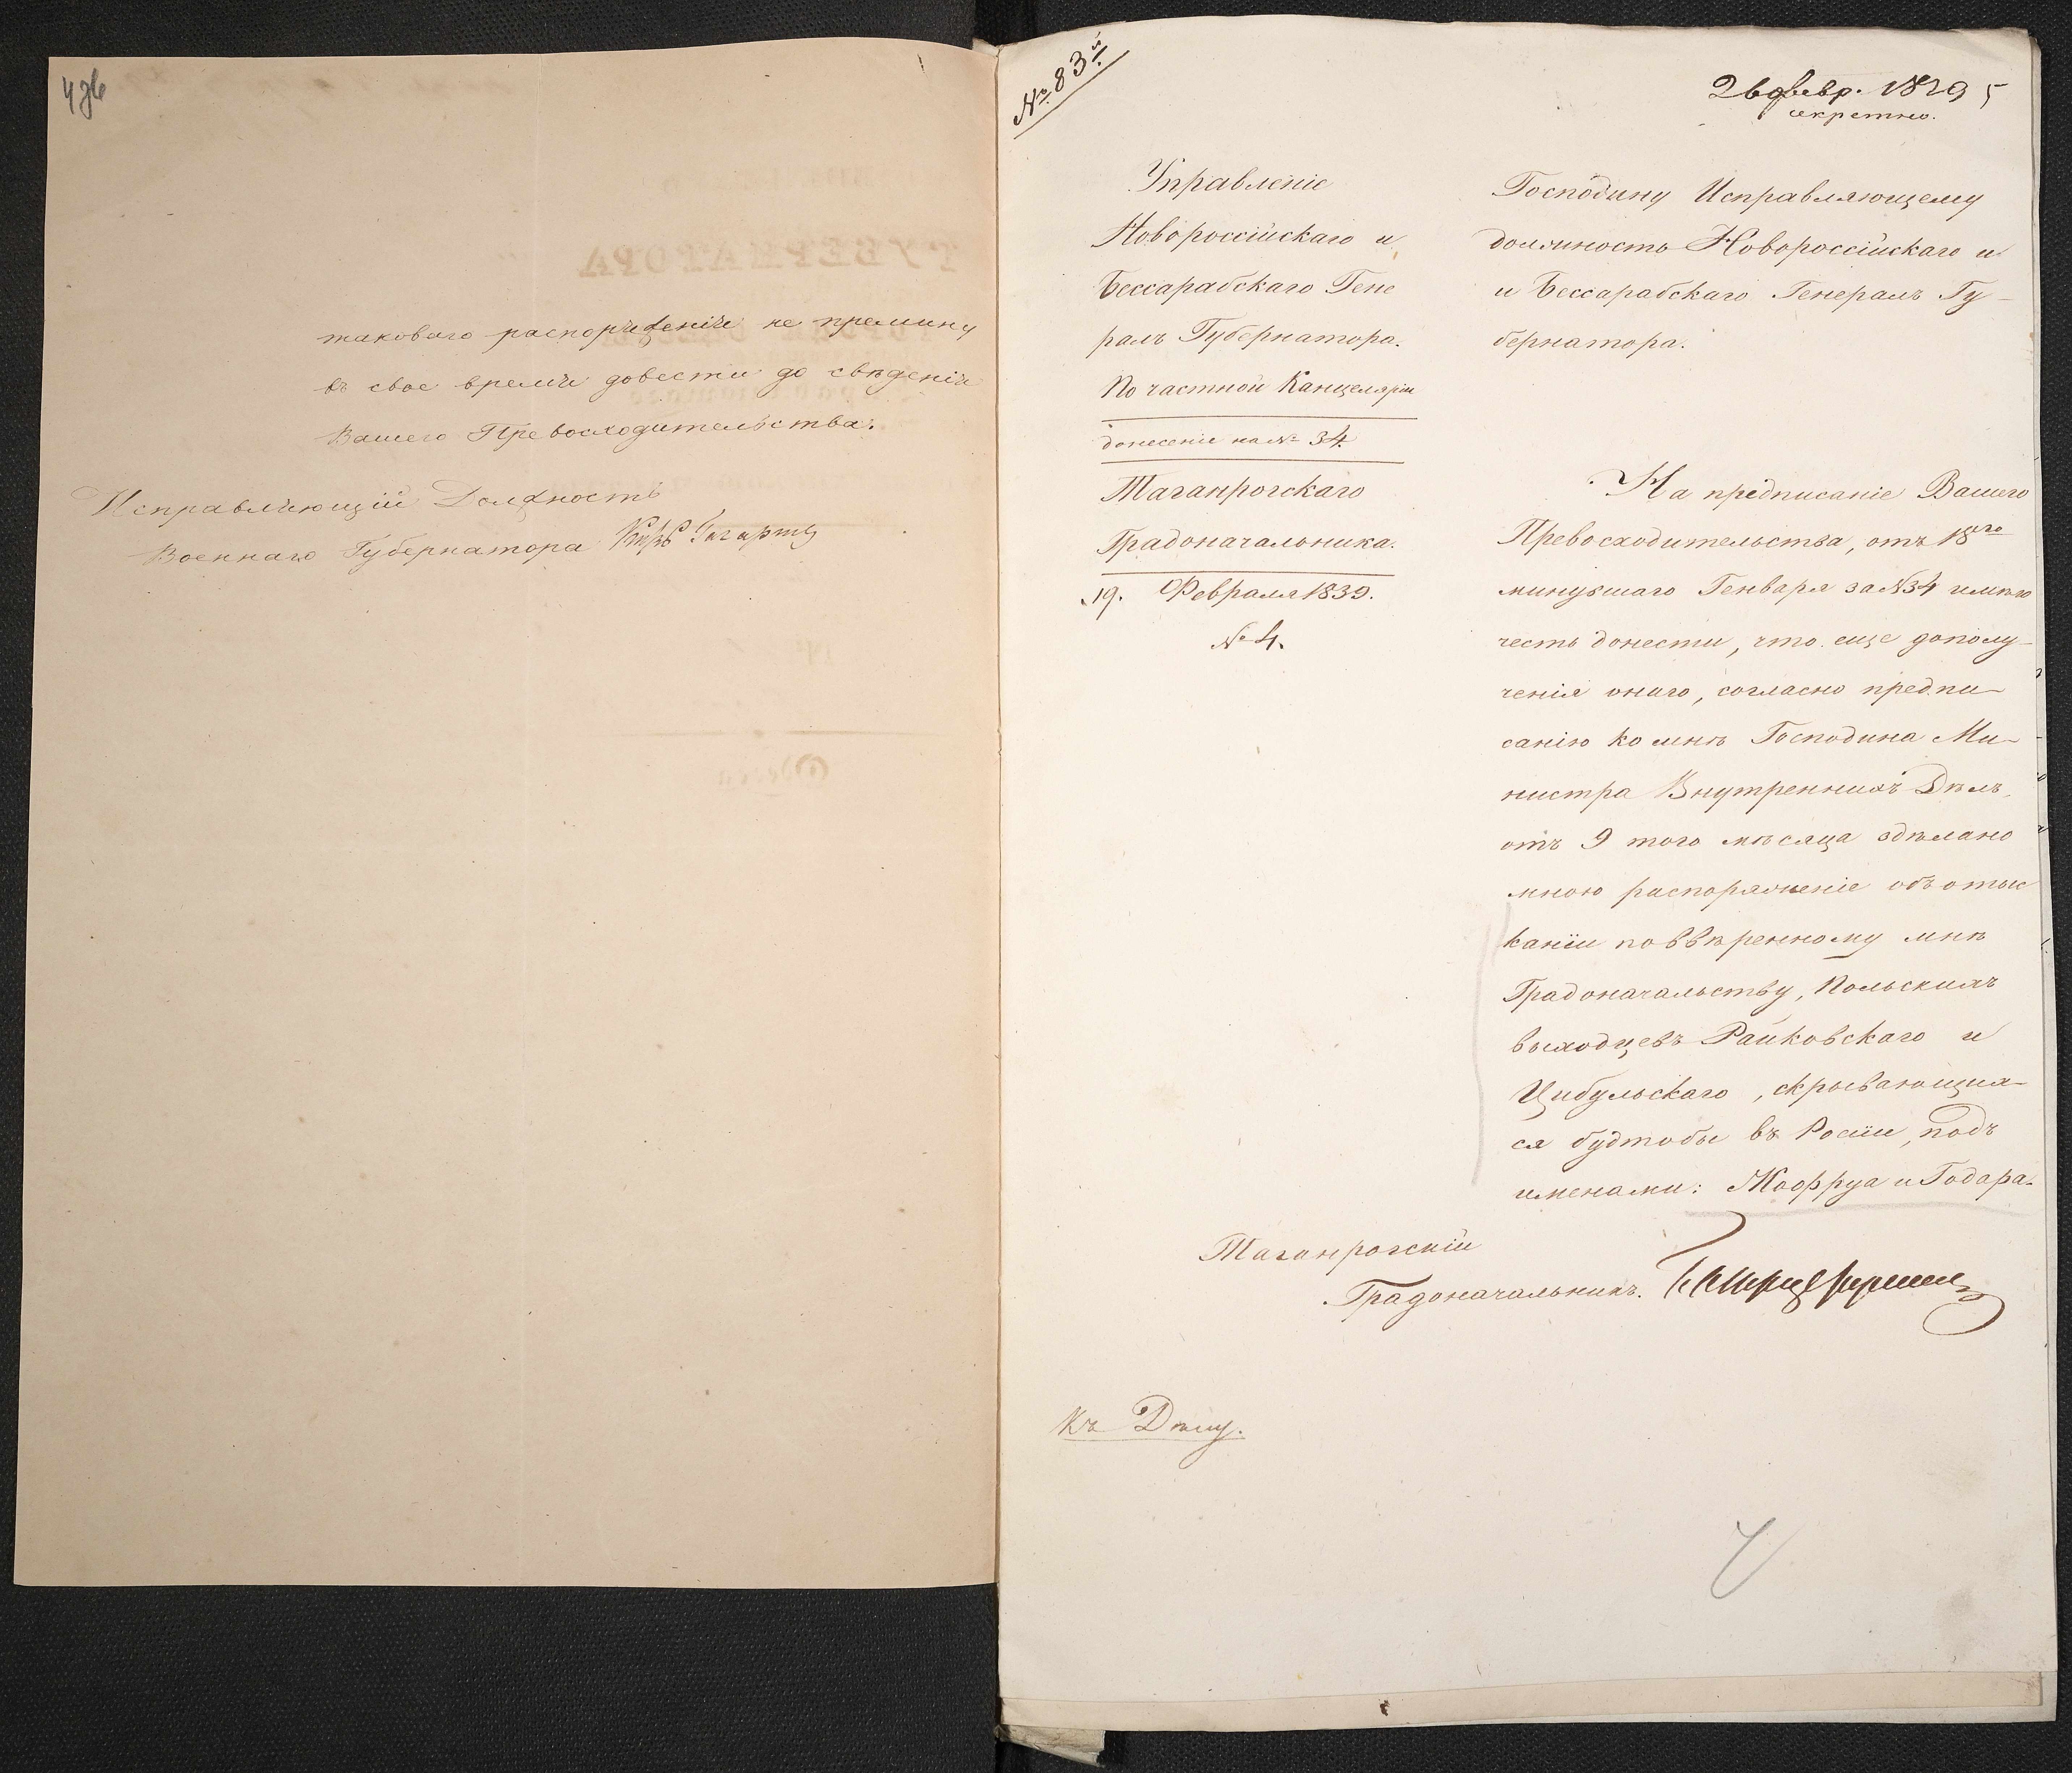 таковаго распоряженія не премину
въ свое время довести до свѣденія
Вашего Превосходительства.
Исправляющій Должность
Военнаго Губернатора
№ 83й.
26 февр. 1839 5
секретно.
Управленіе
Новороссійскаго и
Бессарабскаго Гене
ралъ Губернатора.
По частной Канцеляріи
донесеніе на № 34.
Таганрогскаго
Градоначальника.
19. Февраля 1839.
№ 4.
Господину Исправляющему
должность Новороссійскаго и
и Бессарабскаго Генералъ Гу-
бернатора.
На предписаніе Вашего
Превосходительства, отъ 18го
минувшаго Генваря за №34 имѣю
честь донести, что еще дополу-
ченія онаго, согласно предпи-
санію ко мнѣ Господина Ми-
нистра Внутреннихъ Дѣлъ,
отъ 9 того мѣсяца здѣлано
мною распоряженіе объ отыс
каніи по ввѣренному мнѣ
Градоначальству, Польскихъ
выходцевъ Райковскаго и
Цибульскаго, скрывающих-
ся будтобы въ Росіи, подъ
именами: Жоффруа и Годара.
Таганрогскій
Градоначальникъ.
Къ Дѣлу.